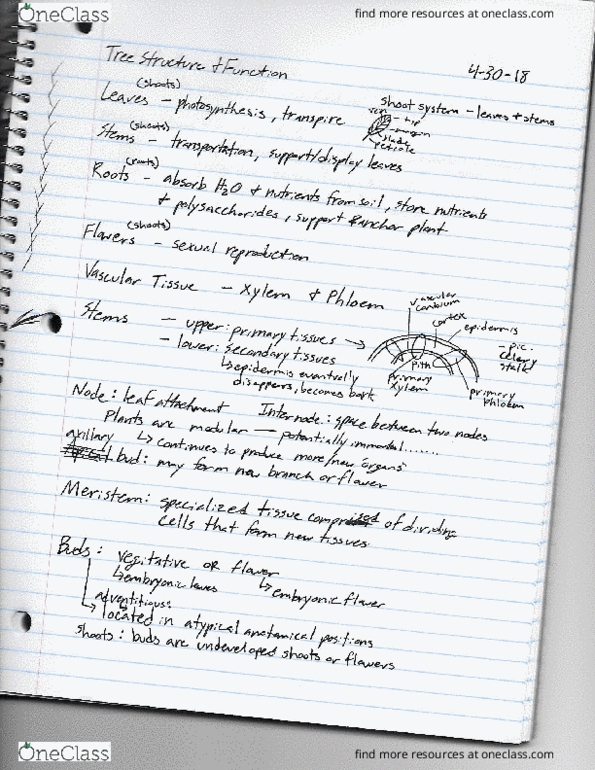 OneClass
find more resources at oneclass.com
Tree Structure & Function
4-30-18
(shoots)
Leaves - photosynthesis, transpire
shoot system - leaves & stems
vein
tip
margin
blade
petiole
(shoots)
Stems - transportation, support/display leaves
(roots)
Roots - absorb H2O & nutrients from soil, store nutrients
& polysaccharides, support & anchor plant
(shoots)
Flowers - sexual reproduction
Vascular Tissue - Xylem & Phloem
vascular
cambium
cortex
epidermis
- pic:
celery
stalk
pith
primary
xylem
primary
Phloem
Stems - upper: primary tissues →
- lower: secondary tissues
↳ epidermis eventually
disappears, becomes bark
Node: leaf attachment Internode: space between two nodes
Plants are modular — potentially immortal.......
↳ continues to produce more/new "organs"
axillary
bud: may form new branch or flower
Meristem: specialized tissue comprised of dividing
cells that form new tissues
Buds: vegitative OR flower
↳ embryonic leaves ↳ embryonic flower
adventitious:
↳ located in atypical anatomical positions
shoots: buds are undeveloped shoots or flowers
OneClass
find more resources at oneclass.com